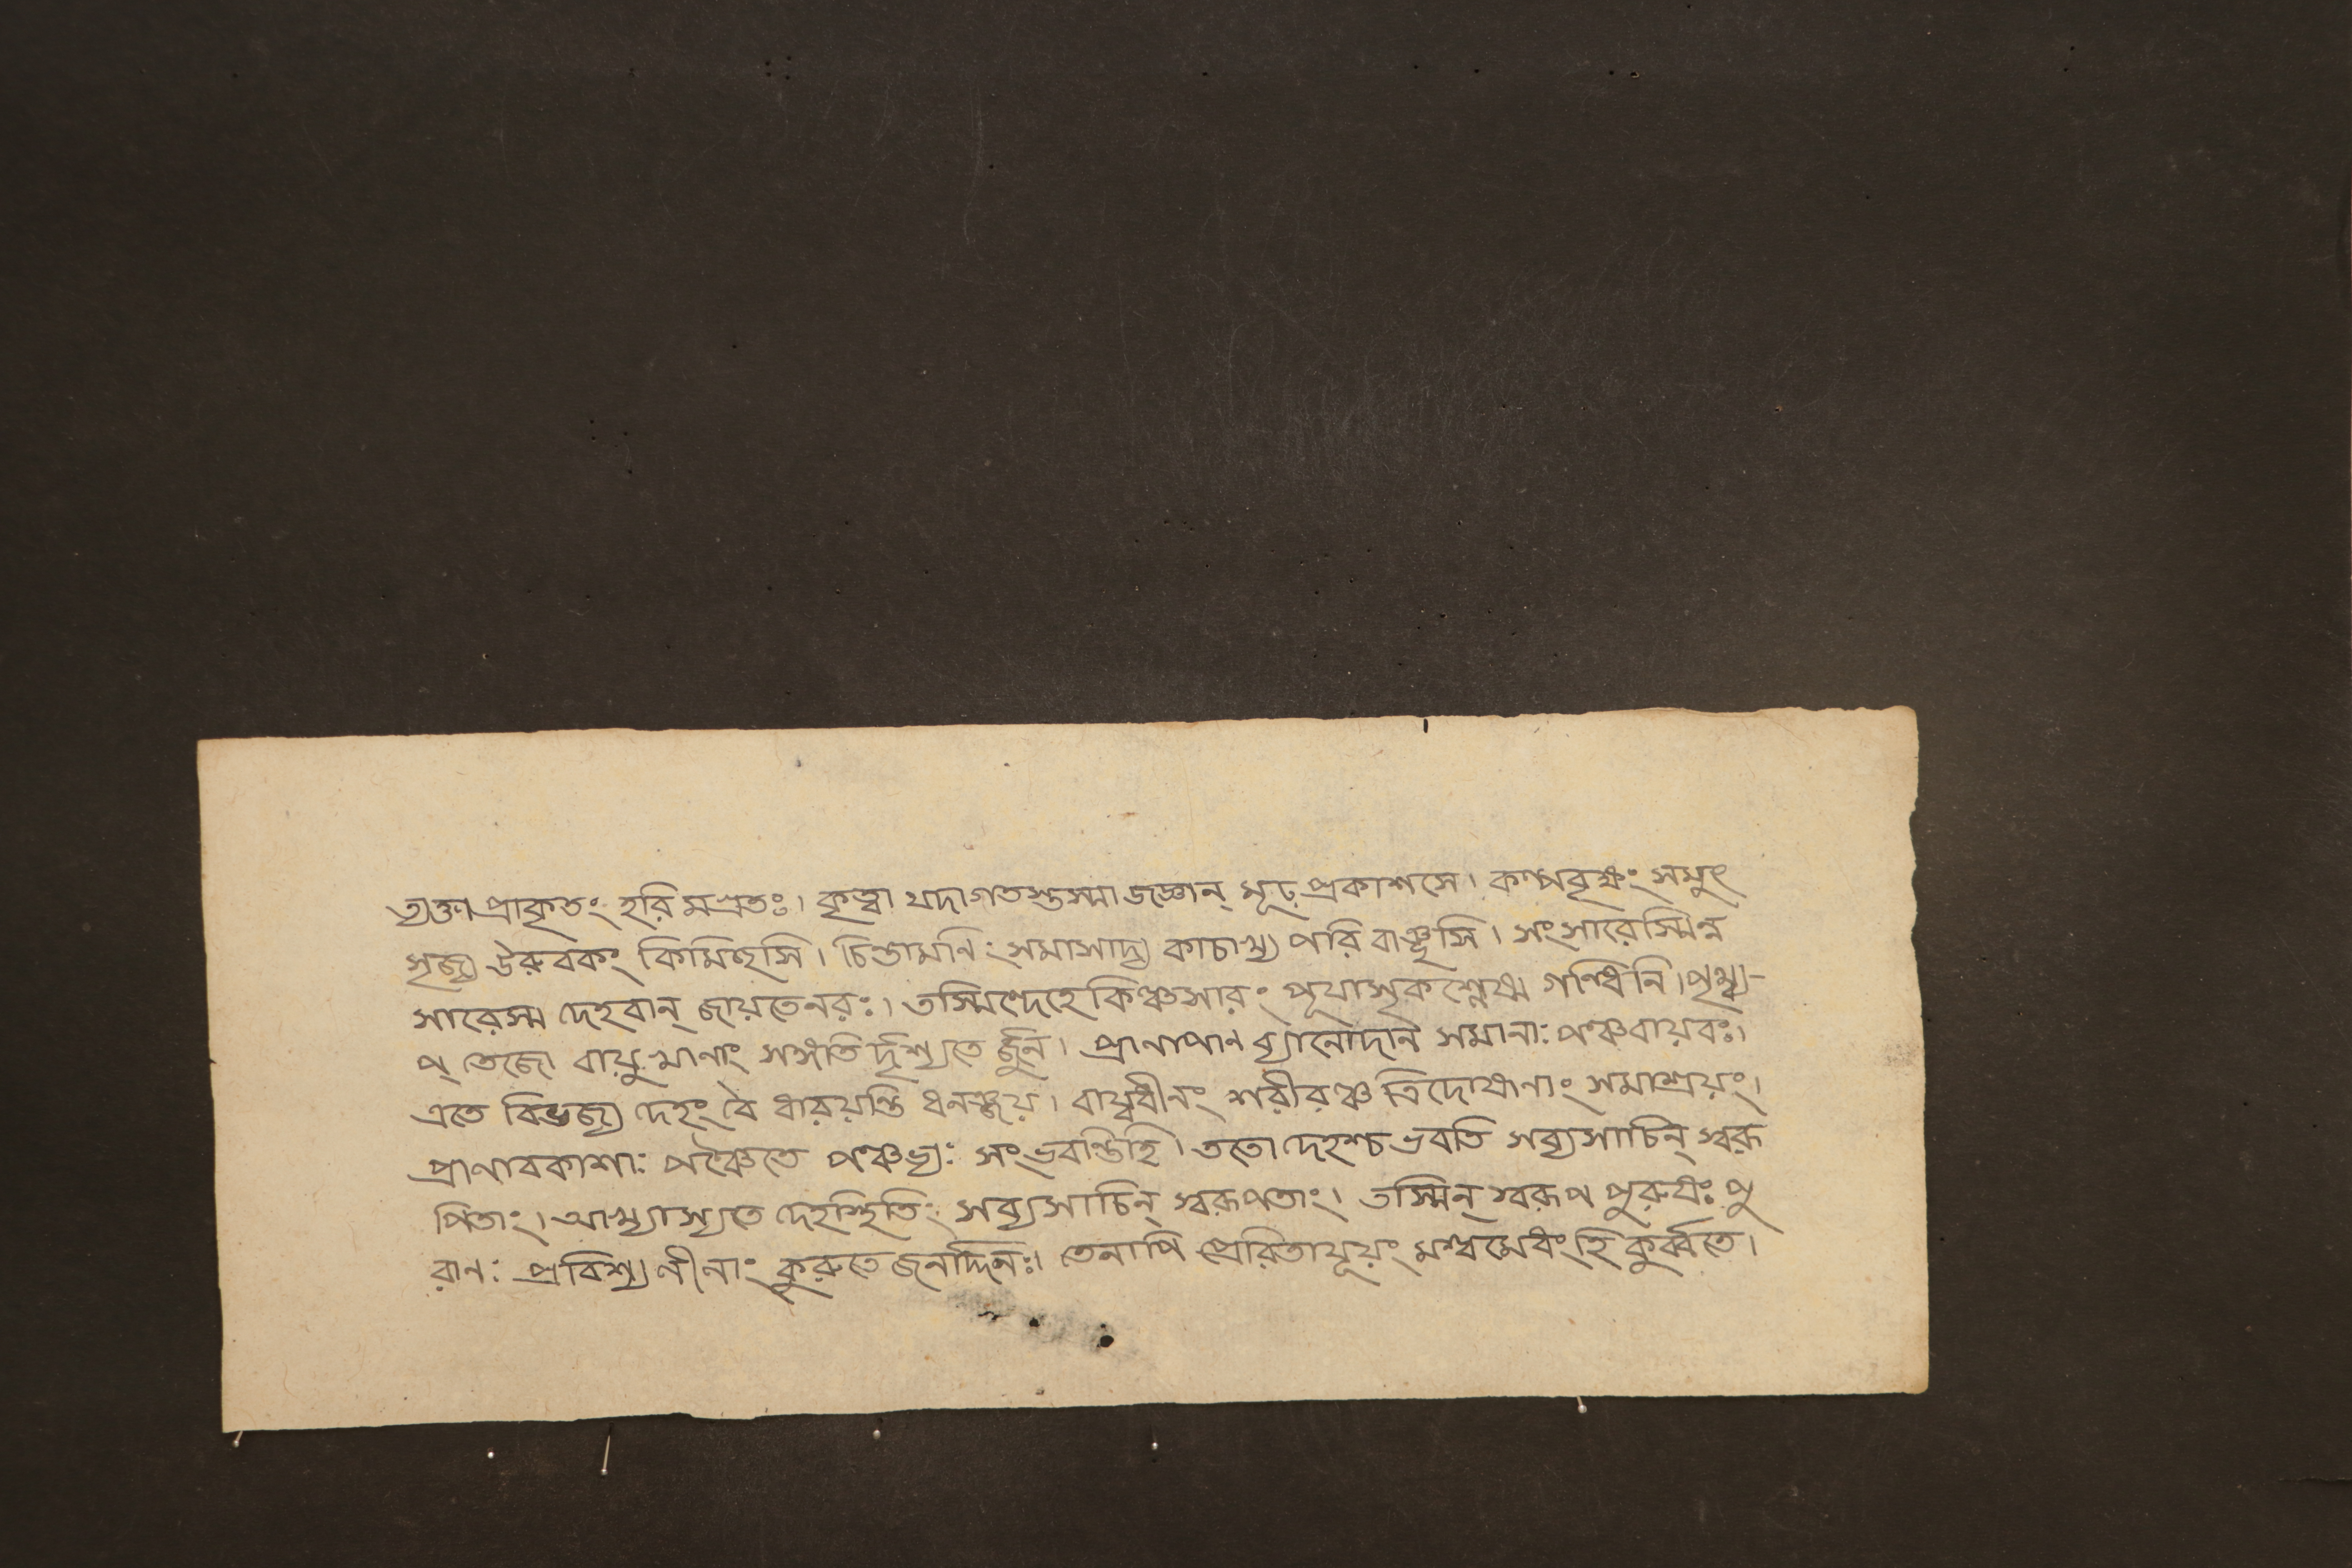 ত্যক্তা প্রাকৃতং হরি মগ্রতঃ। কৃত্বা যদাগতস্তস্মা জ্জ্ঞান্ মূঢ় প্রকাশসে। কল্পবৃক্ষং সমুৎ
সৃজ্য উরুবকং কিমিচ্ছসি। চিন্তামনিং সমাসাদ্য কাচাখ্য পরি বাঞ্ছসি। সংসারেস্মিন্ন
সারেস্ম দেহবান্ জায়তেনরঃ। তস্মিন্দেহে কিঞ্চসারং পূযাসৃকশ্লেষ্ম গন্ধিনি। পৃথ্ব্য-
প্ তেজো বায়ু খানাং সঙ্গতি র্দৃশ্যতে র্জুন। প্রাণাপান ব্যানোদান সমানাঃ পঞ্চবায়বঃ।
এতে বিভজ্য দেহং বৈ ধারয়ন্তি ধনঞ্জয়। বায়্বধীনং শরীরঞ্চ ত্রিদোষানাং সমাশ্রয়ং।
প্রাণাবকাশাঃ পঞ্চৈতে পঞ্চভ্যঃ সংভবন্তিহি। ততো দেহশ্চ ভবতি সব্যসাচিন্ স্বরূ
পিতাং। আখ্যাস্যতে দেহস্থিতিং সব্যসাচিন্ স্বরূপতাং। তস্মিন্ স্বরূপ পুরুষঃ পু
রানঃ প্রবিশ্য লীলাং কুরুতে জনার্দ্দনঃ। তেনাপি প্রেরিতাযূয়ং মশ্বমেধং হি কুর্ব্বতে।